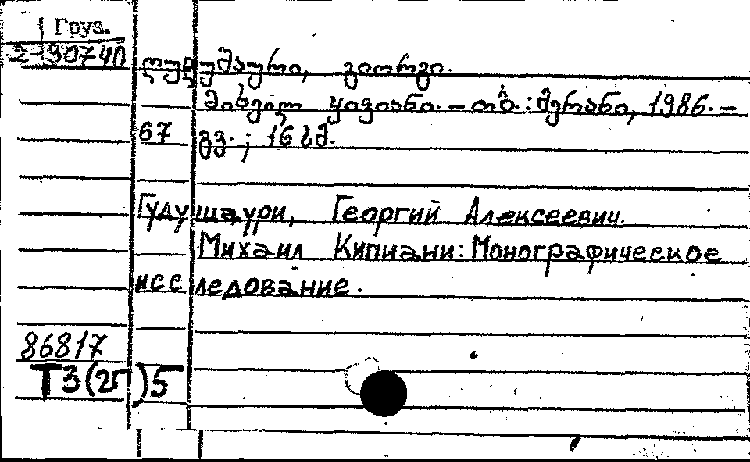 Груз.
2-90740
ღუდუშაური, გიორგი.
მიხეილ ყიფიანი. – თბ. : მერანი, 1986. –
67 გვ. ; 16 სმ.
Гудушаури, Георгий Алексеевич.
Михаил Кипиани: Монографическое
исследование.
86817
Т3(2Г)5